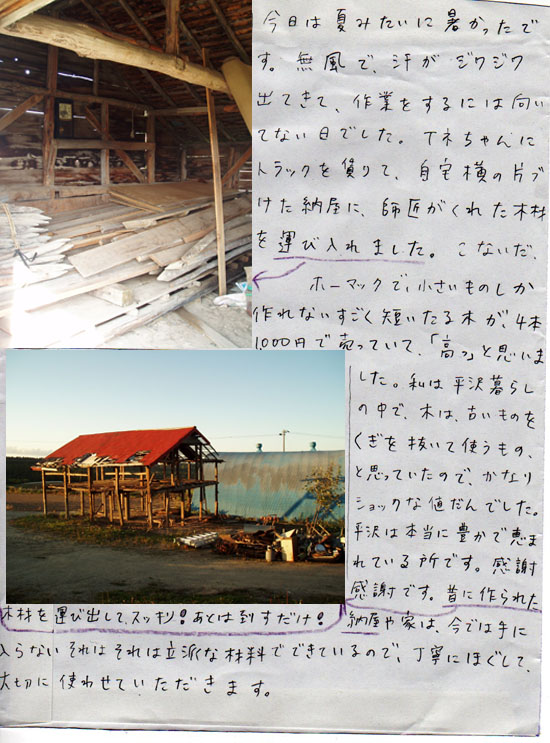 今日は夏みたいに暑かったで
す。無風で、汗がジワジワ
出てきて、作業をするには向い
てない日でした。Tネちゃんに
トラックを貸りて、自宅横の片づ
けた納屋に、師匠がくれた木材
を運び入れました。こないだ、
ホーマックで、小さいものしか
作れないすごく短いたる木が、4本
1,000円で売っていて、「高っ」と思いま
した。私は平沢暮らし
の中で、木は、古いものを
くぎを抜いて使うもの、
と思っていたので、かなり
ショックな値だんでした。
平沢は本当に豊かで恵ま
れている所です。感謝
感謝です。昔に作られた
納屋や家は、今では手に
入らないそれはそれは立派な材料でできているので、丁寧にほぐして、
大切に使わせていただきます。
木材を運び出して、スッキリ!あとは倒すだけ!